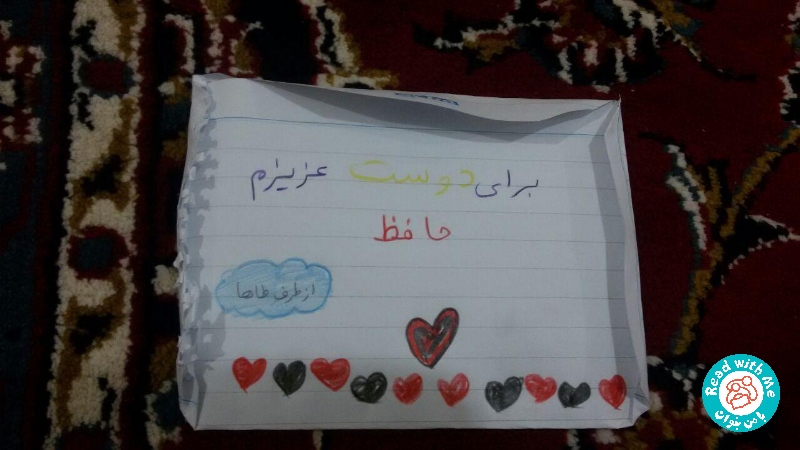 برای دوست عزیزم
حافظ
از طرف طاها
Read with Me
با من بخوان